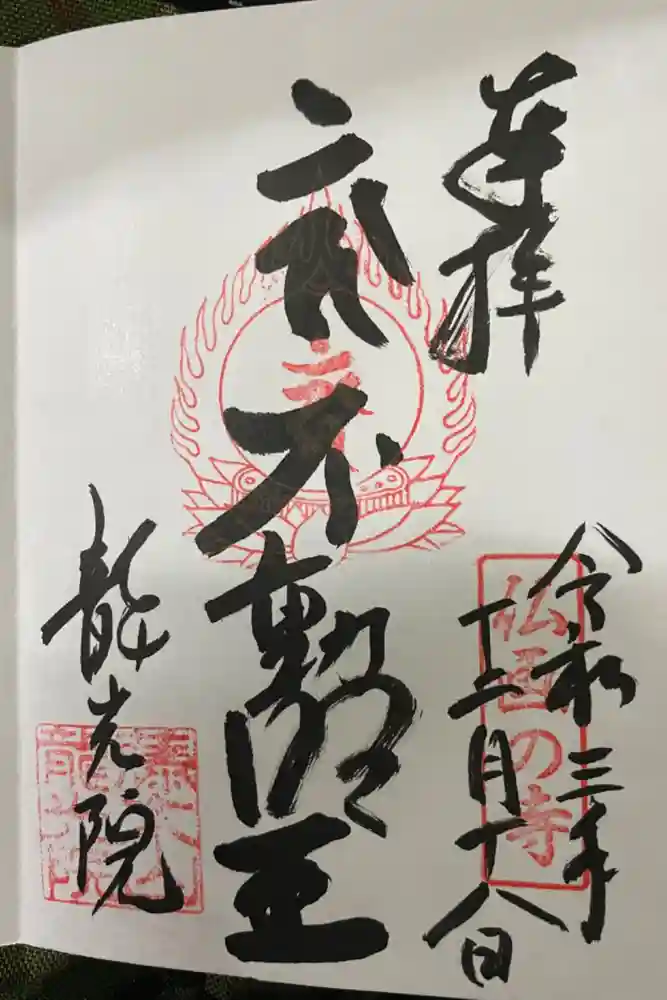 奉拝
令和三年
十二月十八日
仏画の寺
不動明王
龍光院